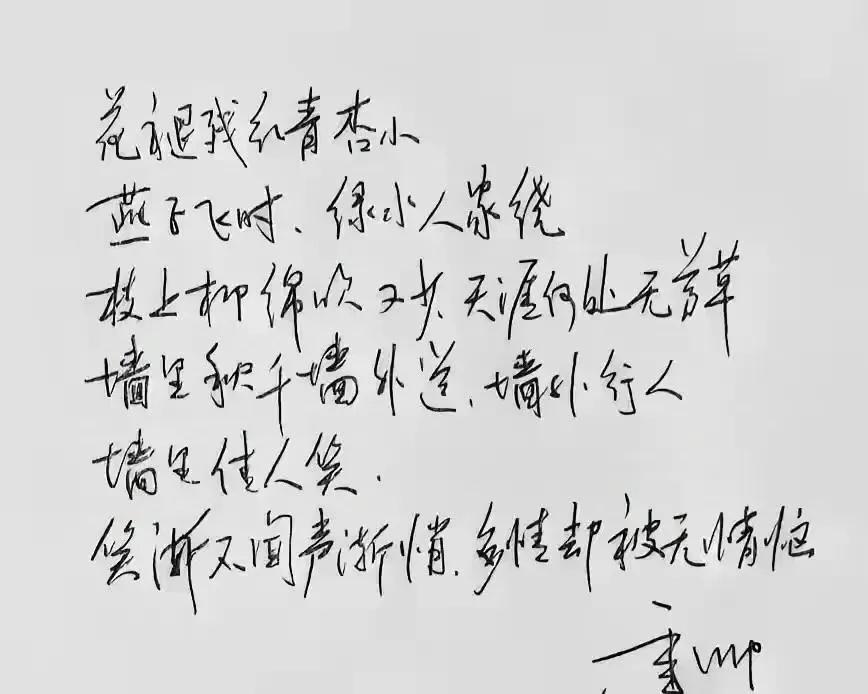 花褪残红青杏小
燕子飞时、绿水人家绕
枝上柳绵吹又少,天涯何处无芳草
墙里秋千墙外道,墙外行人
墙里佳人笑.
笑渐不闻声渐悄.多情却被无情恼